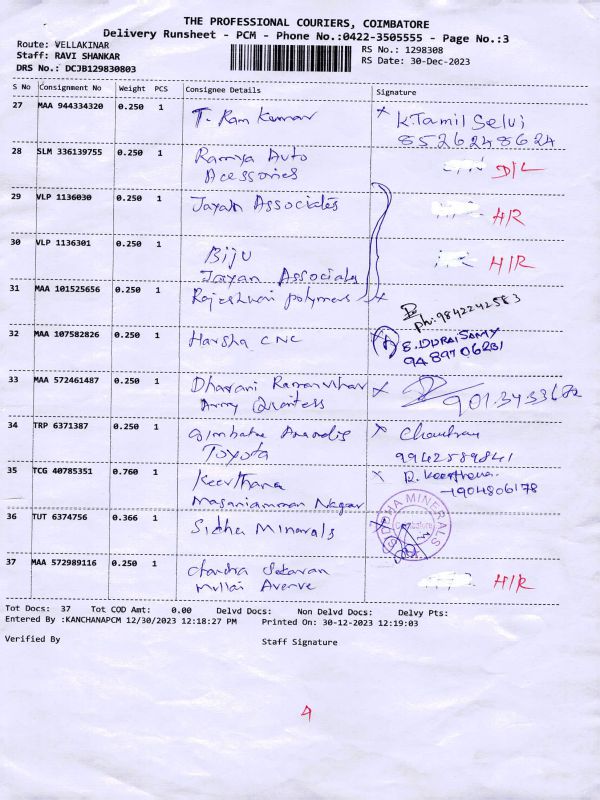 THE PROFESSIONAL COURIERS, COIMBATORE
Delivery Runsheet - PCM - Phone No.:0422-3505555 - Page No.:3
Route: VELLAKINAR
Staff: RAVI SHANKAR
DRS No.: DCJB129830803
RS No.: 1298308
RS Date: 30-Dec-2023
S No Consignment No Weight PCS Consignee Details Signature
27 MAA 944334320 0.250 1 T. Ram Kumar x K.Tamil Selvi
8526248624
28 SLM 336139755 0.250 1 Ramya Auto D/L
Acessories
29 VLP 1136030 0.250 1 Jayan Associates H/R
30 VLP 1136301 0.250 1 Biju H/R
Jayan Associates
31 MAA 101525656 0.250 1 Rajeshwari polymers x
Ph: 9842242583
32 MAA 107582826 0.250 1 Harsha CNC E. DURAI SAMY
9489706231
33 MAA 572461487 0.250 1 Dharani x
Army
34 TRP 6371387 0.250 1 x
Toyota 9942589841
35 TCG 40785351 0.760 1 Keerthana x R. Keerthana
Masaniamman Nagar
36 TUT 6374756 0.366 1 Sidha Minerals x SIDHA MINERALS
Coimbatore
37 MAA 572989116 0.250 1 Chandra Sekaran H/R
Mullai Avenue
Tot Docs: 37 Tot COD Amt: 0.00 Delvd Docs: Non Delvd Docs: Delvy Pts:
Entered By :KANCHANAPCM 12/30/2023 12:18:27 PM Printed On: 30-12-2023 12:19:03
Verified By Staff Signature